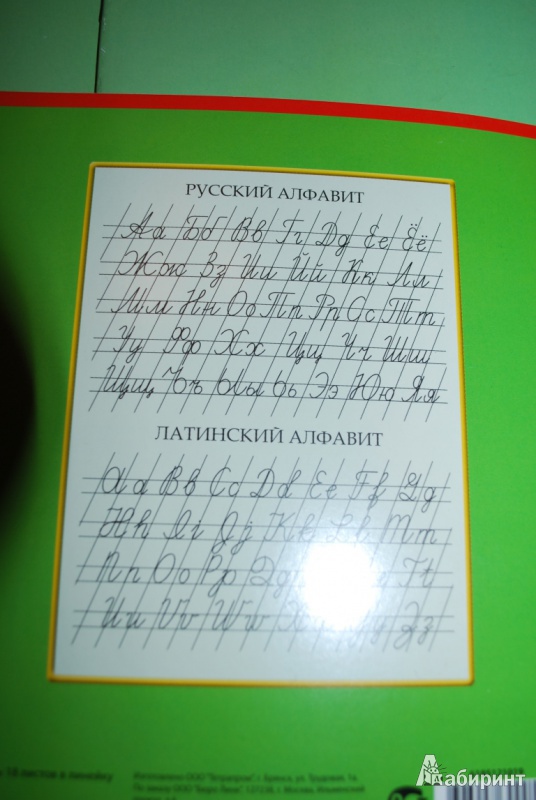 РУССКИЙ АЛФАВИТ
Аа Бб Вв Гг Дд Ее Ёё
Жж Зз Ии Йй Кк Лл
Мм Нн Оо Пп Рр Сс Тт
Уу Фф Хх Цц Чч Шш
Щщ Ъъ Ыы Ьь Ээ Юю Яя
ЛАТИНСКИЙ АЛФАВИТ
Aa Bb Cc Dd Ee Ff Gg
Hh Ii Jj Kk Ll Mm
Nn Oo Pp Qq Tt
Uu Vv Ww Zz
18 листов в линейку
Лабиринт